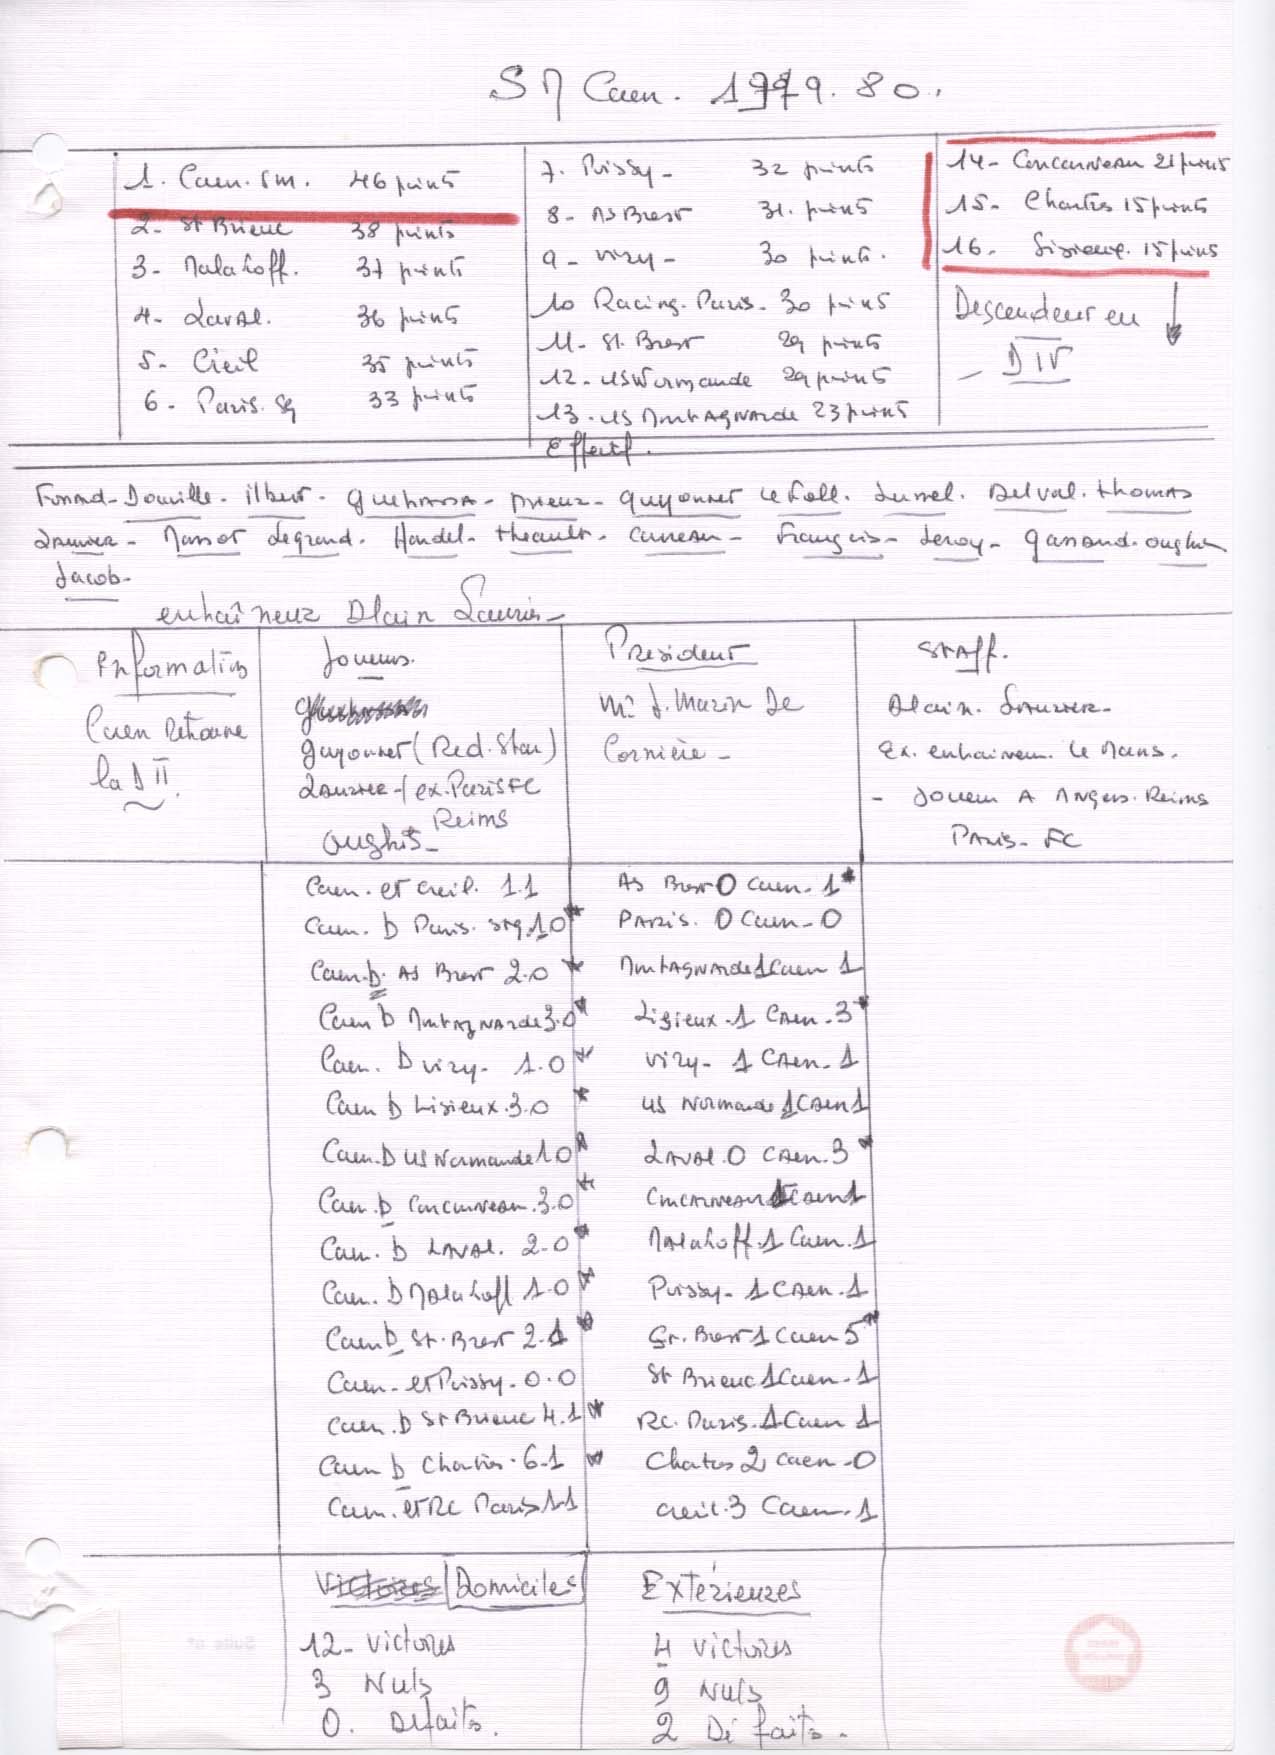 SM Caen. 1979.80.
1. Caen. SM. 46 points
2- St Brieuc 38 points
3- Malakoff. 37 points
4- Laval. 36 points
5- Creil 35 points
6- Paris. SG 33 points
7. Poissy- 32 points
8- AS Brest 31. points
9- Viry- 30 points.
10 Racing. Paris. 30 points
11- St. Brest 29 points
12- US Normande 29 points
13- US Montagnarde 23 points
14- Concarneau 21 points
15- Chartres 15 points
16. Lisieux. 15 points
Descendent en
- D IV
Effectif.
Douville- Ilbert- Prieur- Guyonnet Le Foll. Delval. Thomas
Lauvier- Massot Legrand. Handel- Theault- Carreau- François- Leroy- Gassand.
Jacob-
entraîneur Alain Lauvier-
Informations
Caen Retrouve
la D II.
Joueurs.
Guyonnet (Red. Star)
Lauvier- (ex. Paris FC
Reims
President
Mr J. Marin De
Cornière-
Staff.
Alain. Lauvier-
Ex. entraineur. Le Mans.
- Joueur A Angers. Reims
Paris- FC
Caen. et Creil. 1.1
Caen. b Paris. SG. 1.0*
Caen. b. AS Brest 2.0 *
Caen b Montagnarde 3.0*
Caen. b Viry- 1.0 *
Caen b Lisieux. 3.0 *
Caen. b US Normande 1.0*
Caen. b Concarneau. 3.0*
Caen. b Laval. 2.0*
Caen. b Malakoff 1.0*
Caen b St. Brest 2.1*
Caen- et Poissy- 0.0
Caen. b St Brieuc 4.1*
Caen b Chartres. 6-1 *
Caen. et RC Paris 1-1
AS Brest 0 Caen. 1*
Paris. 0 Caen- 0
Montagnarde 1 Caen 1
Lisieux. 1 Caen. 3*
Viry- 1 Caen. 1
US Normande 1 Caen 1
Laval. 0 Caen. 3*
Concarneau 1 Caen 1
Malakoff. 1 Caen. 1
Poissy- 1 Caen. 1
St. Brest 1 Caen 5*
St Brieuc 1 Caen. 1
RC. Paris. 1 Caen 1
Chartres 2 Caen- 0
Creil. 3 Caen. 1
Victoires Domiciles
12- Victoires
3 Nuls
0. Défaits.
Extérieures
4 Victoires
9 Nuls
2 Défaits.
Suite n°